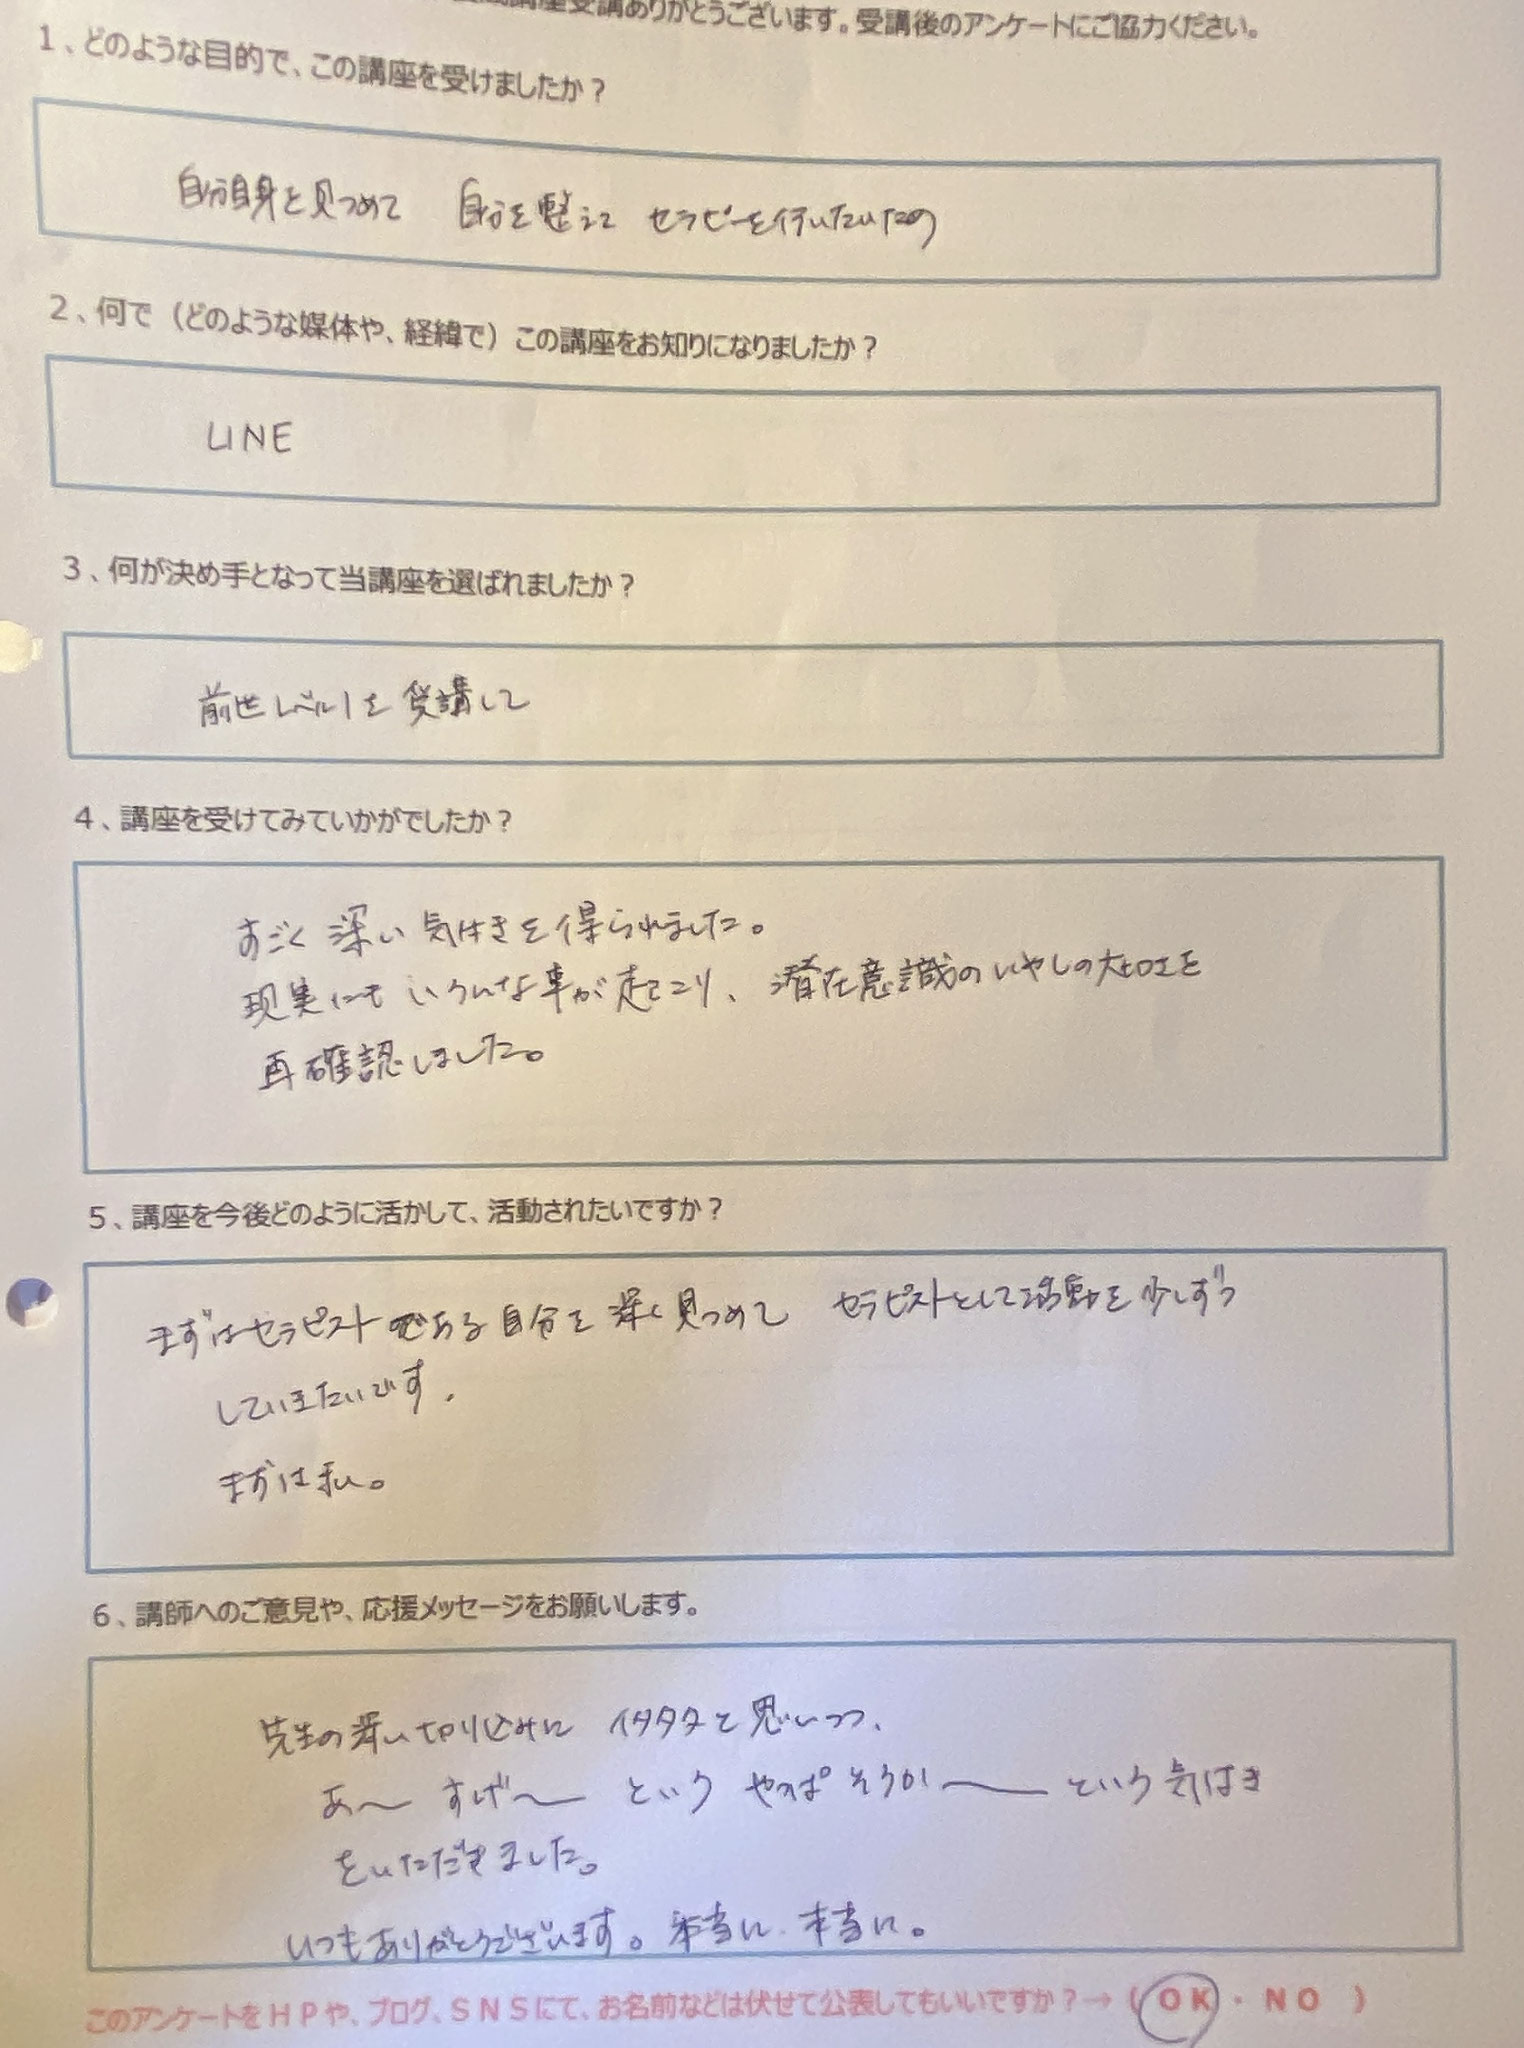 講座受講ありがとうございます。受講後のアンケートにご協力ください。
1、どのような目的で、この講座を受けましたか？
自分自身を見つめて 自分を整えて セラピーを行いたいため
2、何で（どのような媒体や、経緯で）この講座をお知りになりましたか？
LINE
3、何が決め手となって当講座を選ばれましたか？
前世レベル1を受講して
4、講座を受けてみていかがでしたか？
すごく深い気付きを得られました。
現実にもいろんな事が起こり、潜在意識のいやしの大切さを
再確認しました。
5、講座を今後どのように活かして、活動されたいですか？
まずはセラピストである自分を深く見つめて セラピストとして活動を少しずつ
していきたいです。
まずは私。
6、講師へのご意見や、応援メッセージをお願いします。
先生の深い切り込みに イタタタと思いつつ、
あ〜 すげ〜 という やっぱそうか〜 という気付き
をいただきました。
いつもありがとうございます。本当に、本当に。
このアンケートをＨＰや、ブログ、ＳＮＳにて、お名前などは伏せて公表してもいいですか？→（ ＯＫ・ＮＯ ）